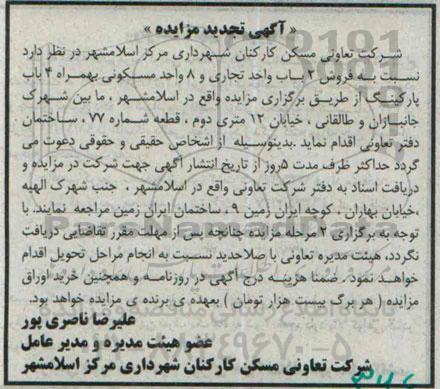 « آگهی تجدید مزایده »
شرکت تعاونی مسکن کارکنان شهرداری مرکز اسلامشهر در نظر دارد
نسبت به فروش ۲ باب واحد تجاری و ۸ واحد مسکونی بهمراه ۴ باب
پارکینگ از طریق برگزاری مزایده واقع در اسلامشهر ، ما بین شهرک
جانبازان و طالقانی ، خیابان ۱۲ متری دوم ، قطعه شماره ۷۷، ساختمان
دفتر تعاونی اقدام نماید .بدینوسیله از اشخاص حقیقی و حقوقی دعوت می
گردد حداکثر ظرف مدت ۵روز از تاریخ انتشار آگهی جهت شرکت در مزایده و
دریافت اسناد به دفتر شرکت تعاونی واقع در اسلامشهر ، جنب شهرک الهیه
،خیابان بهاران ، کوچه ایران زمین ۹ ، ساختمان ایران زمین مراجعه نمایند. با
توجه به برگزاری ۲ مرحله مزایده چنانچه پس از مهلت مقرر تقاضایی دریافت
نگردد، هیئت مدیره تعاونی با صلاحدید نسبت به انجام مراحل تحویل اقدام
خواهد نمود. ضمنا هزینه درج آگهی در روزنامه و همچنین خرید اوراق
مزایده ( هر برگ بیست هزار تومان ) بعهده ی برنده ی مزایده خواهد بود.
علیرضا ناصری پور
عضو هیئت مدیره و مدیر عامل
شرکت تعاونی مسکن کارکنان شهرداری مرکز اسلامشهر